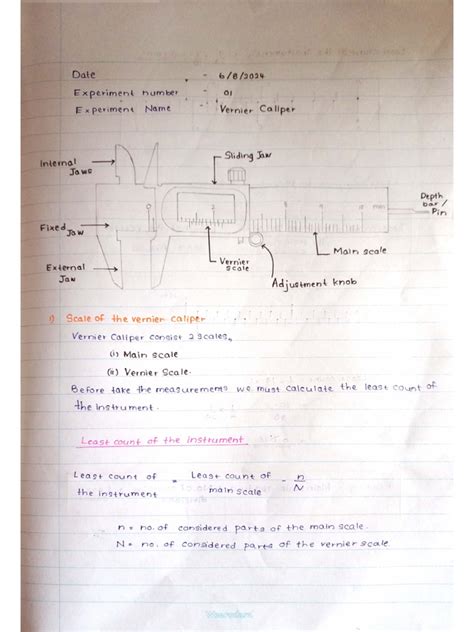 Date - 6/8/2024
Experiment number - 01
Experiment Name - Vernier Caliper
Internal Jaws
Sliding Jaw
Depth bar / Pin
Fixed Jaw
Main scale
Vernier scale
External Jaw
Adjustment knob
1) Scale of the vernier caliper
Vernier Caliper consist 2 scales,
(i) Main scale
(ii) Vernier Scale.
Before take the measurements we must calculate the least count of
the instrument.
Least count of the instrument
Least count of the instrument = Least count of main scale - n/N
n = no. of considered parts of the main scale.
N = no. of considered parts of the vernier scale